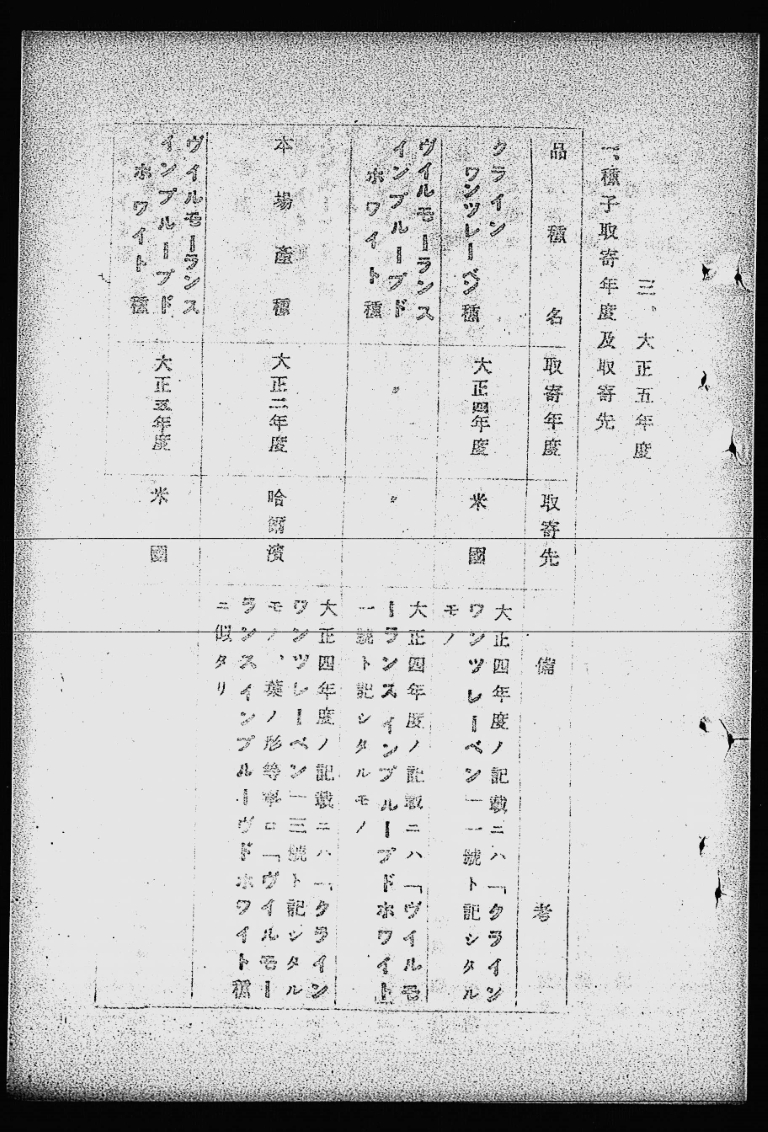 三、大正五年度
一、種子取寄年度及取寄先
品種名
取寄年度
取寄先
備考
クライン
ワンツレーベン種
大正四年度
米國
大正四年度ノ記載ニハ「クライン
ワンツレーベン」一號ト記シタル
モノ
ヴイルモーランス
インプルーブド
ホワイト種
〃
〃
大正四年度ノ記載ニハ「ヴイルモ
ーランスインプルーブドホワイト」
一號ト記シタルモノ
本場產種
大正二年度
哈爾濱
大正四年度ノ記載ニハ「クライン
ワンツレーベン」三號ト記シタル
モノ、葉ノ形等寧ロ「ヴイルモー
ランスインプルーヴドホワイト種
ニ似タリ
ヴイルモーランス
インプルーブド
ホワイト種
大正五年度
米國